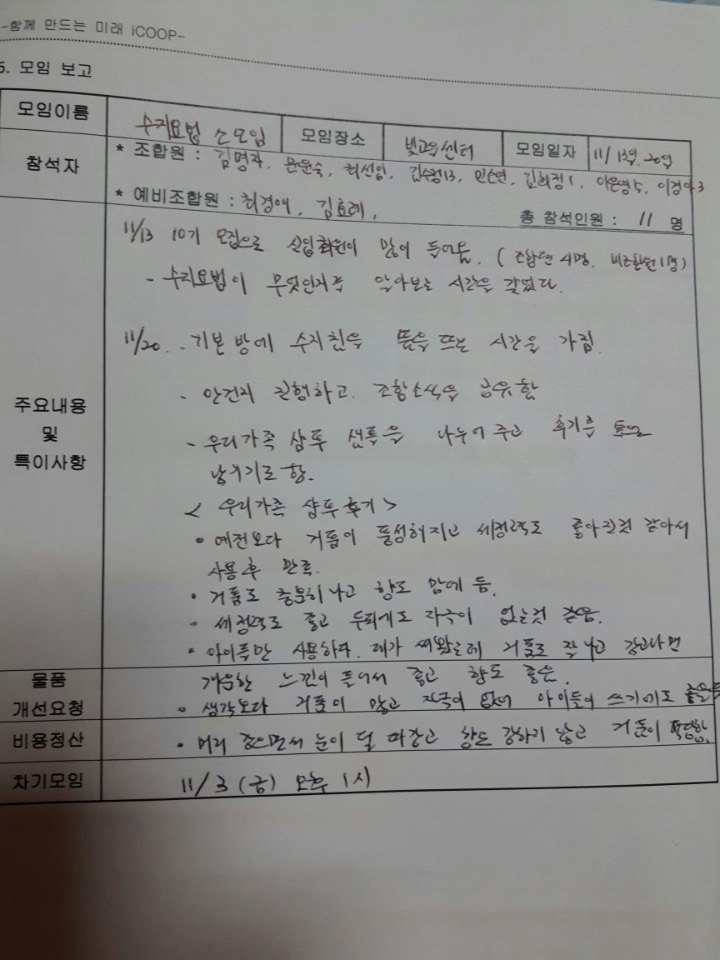 -함께 만드는 미래 iCOOP-
5. 모임 보고
모임이름 수지요법 소모임 모임장소 빛고을센터 모임일자 11/13일, 20일
참석자 * 조합원 : 김명자, 윤윤숙, 최선임, 김수정13, 민수연, 김희정1, 이은영5, 이정아3
* 예비조합원 : 최경애, 김효례, 총 참석인원 : 11 명
주요내용 및 특이사항
11/13 10기 모집으로 신입회원이 많이 들어옴. (조합원 4명, 비조합원 1명)
- 수지요법이 무엇인지 알아보는 시간을 갖었다.
11/20. - 기본 방에 수지침을 뜸을 뜨는 시간을 가짐.
- 안건지 진행하고. 조합소식을 공유함
- 우리가족 샴푸 샘플을 나누어 주고 후기를
남기기로 함.
< 우리가족 샴푸 후기 >
• 예전보다 거품이 풍성해지고 세정력도 좋아진것 같아서
사용후 만족.
• 거품도 충분히 나고 향도 맘에 듬.
• 세정력도 좋고 두피에도 자극이 없는것 같음.
• 아이들만 사용하다. 제가 써봤는데 거품도 잘 나고 감고나면
물품 개운한 느낌이 들어서 좋고 향도 좋은.
개선요청 • 생각보다 거품이 많고 자극이 없어 아이들이 쓰기에도 좋을듯
비용정산 • 머리 감으면서 눈이 덜 따갑고 향도 강하지 않고 거품이 적당함.
차기모임 11/3 (금) 오후 1시